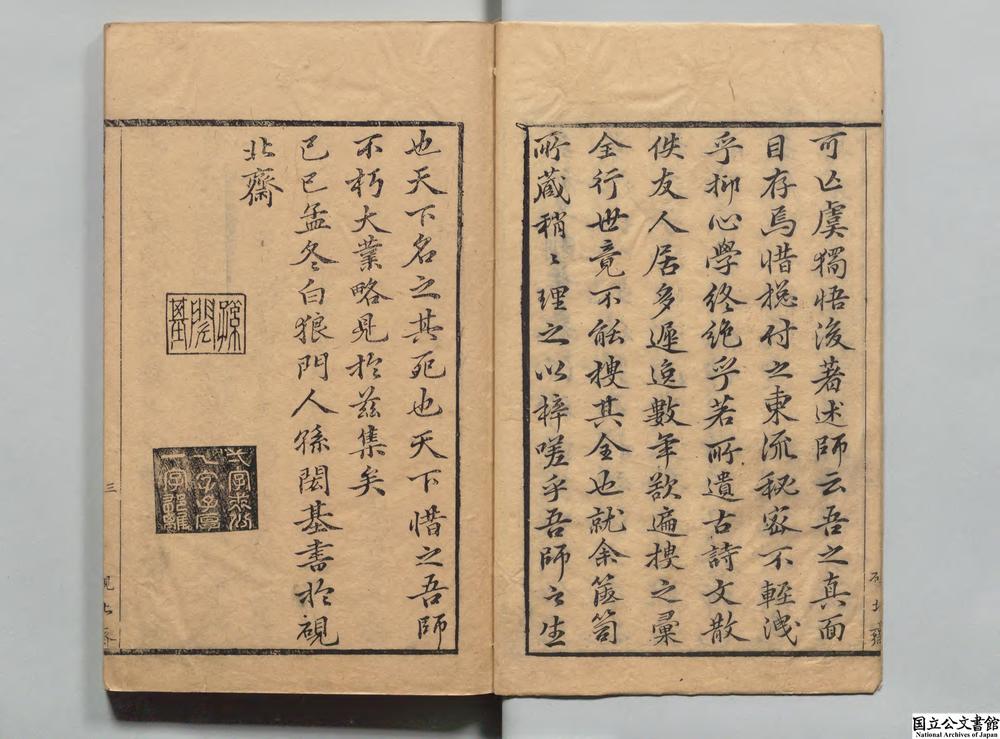 可亾虞獨悟後著述師云吾之真面
目存焉惜揔付之東流秘密不輕洩
乎抑心學終絶乎若所遺古詩文散
佚友人居多遲迟數年欲遍搜之彙
全行世竟不能搜其全也就余篋笥
所蔵稍〻理之以梓嗟乎吾師之生
也天下名之其死也天下惜之吾師
不朽大業略見於茲集矣
己巳孟冬白狼門人孫閎基書於硯
北齋
孫閎基
三
硯北齋
国立公文書館
National Archives of Japan